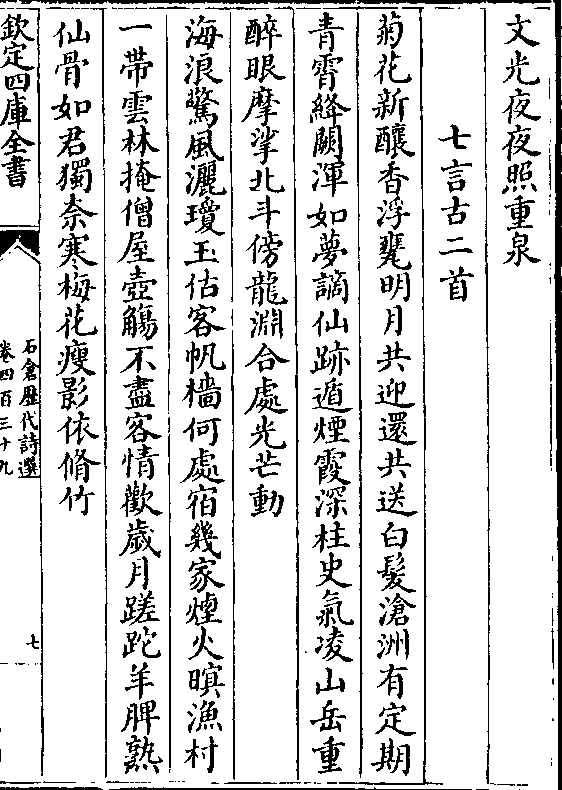 文光夜夜照重泉
七言古二首
菊花新釀香浮甕明月共迎還共送白髮滄洲有定期
青霄絳闕渾如夢謫仙跡遁煙霞深柱史氣凌山岳重
醉眼摩挲北斗傍龍淵合處光芒動
海浪驚風灑瓊玉估客帆檣何處宿幾家煙火暝漁村
一帶雲林掩僧屋壺觴不盡客情歡歲月蹉跎羊脾熟
仙骨如君獨柰寒梅花瘦影依脩竹
欽定四庫全書
石倉歷代詩選
卷四百三十九
七